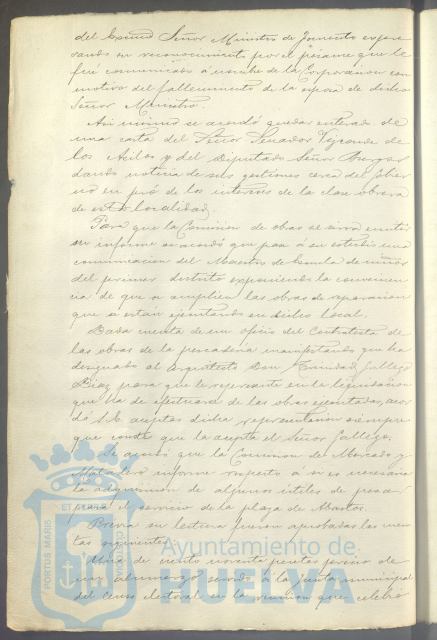 del Excmo Señor Ministro de Fomento expre
sando su reconocimiento por el pésame que le
fué comunicado á nombre de la Corporacion con
motivo del fallecimiento de la esposa de dicho
Señor Ministro.
Asi mismo se acordó quedar enterado de
una carta del Señor Senador Vizconde de
los Asilos y del Diputado Señor Burgos
dando noticia de sus gestiones cerca del Gobier
no en pró de los intereses de la clase obrera
de esta localidad.
Para que la Comision de obras se sirva emitir
su informe se acordó que pase á su estudio una
comunicacion del Maestro de Escuela de niños
del primer distrito exponiendo la convenien
cia de que se amplien las obras de reparacion
que se estan ejecutando en dicho local.
Dada cuenta de un oficio del Contratista de
las obras de la pescadería manifestando que ha
designado al Arquitecto Don Trinidad Gallego
Diaz para que le represente en la liquidacion
que ha de efectuarse de las obras ejecutadas, acor
dó S.E. aceptar dicha representacion siempre
que conste que la acepta el Señor Gallego.
Se acordó que la Comision de Mercado y
Matadero informe respecto á si es necesaria
la adquisicion de algunos útiles de pesar
para el servicio de la plaza de Abastos.
Previa su lectura fueron aprobadas las cuen
tas siguientes:
Una de ciento noventa pesetas precio de
un almuerzo servido á la Junta municipal
del Censo electoral en la reunion que celebró
Ayuntamiento de
HUELVA
PORTUS MARIS
ET